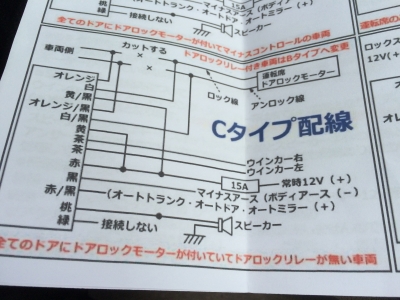 桃
緑
接続しない
スピーカー
全てのドアにドアロックモーターが付いてマイナスコントロールの車両
車両側
カットする
ドアロックリレー付き車両はBタイプへ変更
運転席
ドアロックモーター
ロック線
アンロック線
オレンジ
白
黄/黒
オレンジ/黒
白/黒
黄
茶
茶
赤
黒
赤/黒
桃
緑
Cタイプ配線
ウインカー右
ウインカー左
15A
常時12V（+）
マイナスアース（ボディアース（−）
（オートトランク・オートドア・オートミラー（+）
接続しない
スピーカー
全てのドアにドアロックモーターが付いていてドアロックリレーが無い車両
運転席の
ロックス
12V(+
オレ